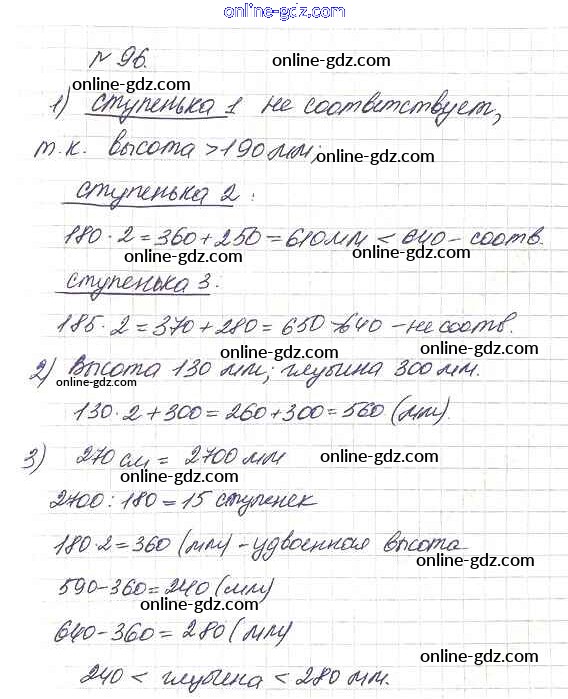 online-gdz.com
№ 96.
online-gdz.com
online-gdz.com
1) ступенька 1 не соответствует,
т.к. высота >190 мм;
online-gdz.com
ступенька 2:
online-gdz.com
180·2=360+250=610мм < 640 - соотв.
online-gdz.com
ступенька 3:
online-gdz.com
185·2=370+280=650 >640 - не соотв.
online-gdz.com
online-gdz.com
2) Высота 130 мм; глубина 300 мм.
online-gdz.com
130·2+300=260+300=560 (мм).
online-gdz.com
3) 270 см = 2700 мм
online-gdz.com
online-gdz.com
2700:180=15 ступенек
online-gdz.com
180·2=360 (мм) - удвоенная высота
online-gdz.com
590-360=240 (мм)
online-gdz.com
online-gdz.com
640-360=280 (мм)
online-gdz.com
240 < глубина < 280 мм.
online-gdz.com